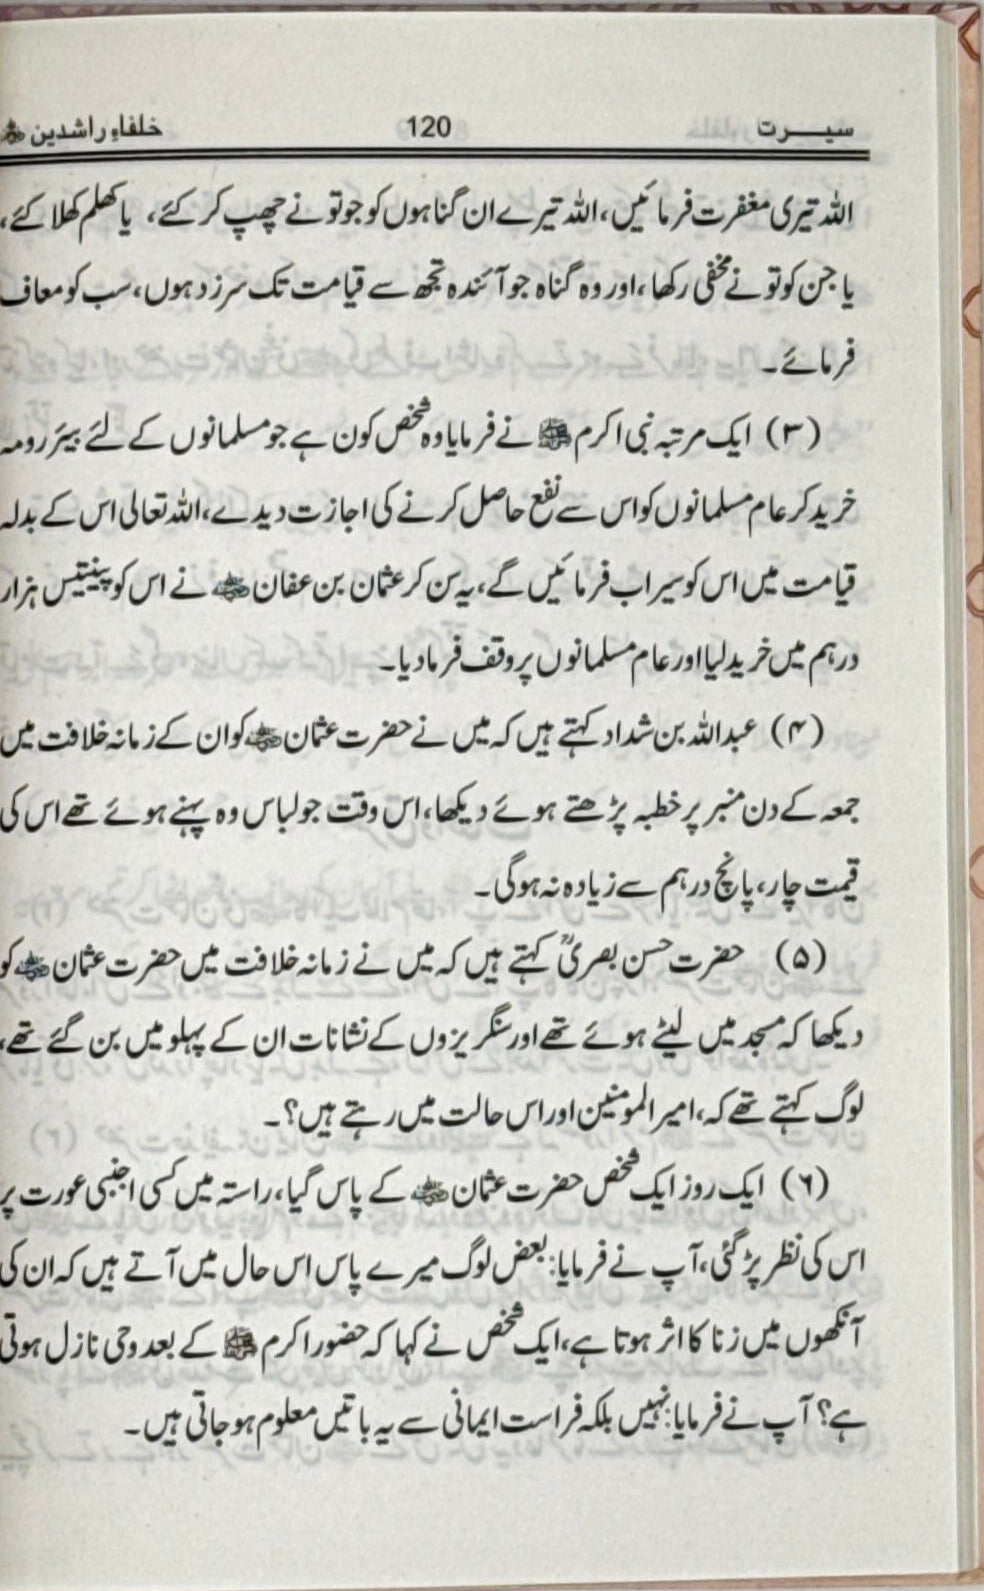 سیرت 120 خلفاءِ راشدین ؓ
اللہ تیری مغفرت فرمائیں، اللہ تیرے ان گناہوں کو جو تو نے چھپ کر کئے، یا کھلم کھلا کئے،
یا جن کو تو نے مخفی رکھا، اور وہ گناہ جو آئندہ تجھ سے قیامت تک سرزد ہوں، سب کو معاف
فرمائے۔
(۳) ایک مرتبہ نبی اکرم ﷺ نے فرمایا وہ شخص کون ہے جو مسلمانوں کے لئے بیئر رومہ
خرید کر عام مسلمانوں کو اس سے نفع حاصل کرنے کی اجازت دیدے، اللہ تعالی اس کے بدلہ
قیامت میں اس کو سیراب فرمائیں گے، یہ سن کر عثمان بن عفان ؓ نے اس کو پینتیس ہزار
درہم میں خرید لیا اور عام مسلمانوں پر وقف فرمادیا۔
(۴) عبداللہ بن شداد کہتے ہیں کہ میں نے حضرت عثمان ؓ کو ان کے زمانہ خلافت میں
جمعہ کے دن منبر پر خطبہ پڑھتے ہوئے دیکھا، اس وقت جو لباس وہ پہنے ہوئے تھے اس کی
قیمت چار، پانچ درہم سے زیادہ نہ ہوگی۔
(۵) حضرت حسن بصریؒ کہتے ہیں کہ میں نے زمانہ خلافت میں حضرت عثمان ؓ کو
دیکھا کہ مسجد میں لیٹے ہوئے تھے اور سنگریزوں کے نشانات ان کے پہلو میں بن گئے تھے،
لوگ کہتے تھے کہ، امیر المومنین اور اس حالت میں رہتے ہیں؟۔
(۶) ایک روز ایک شخص حضرت عثمان ؓ کے پاس گیا، راستہ میں کسی اجنبی عورت پر
اس کی نظر پڑگئی، آپ نے فرمایا: بعض لوگ میرے پاس اس حال میں آتے ہیں کہ ان کی
آنکھوں میں زنا کا اثر ہوتا ہے، ایک شخص نے کہا کہ حضور اکرم ﷺ کے بعد وحی نازل ہوتی
ہے؟ آپ نے فرمایا: نہیں بلکہ فراست ایمانی سے یہ باتیں معلوم ہوجاتی ہیں۔